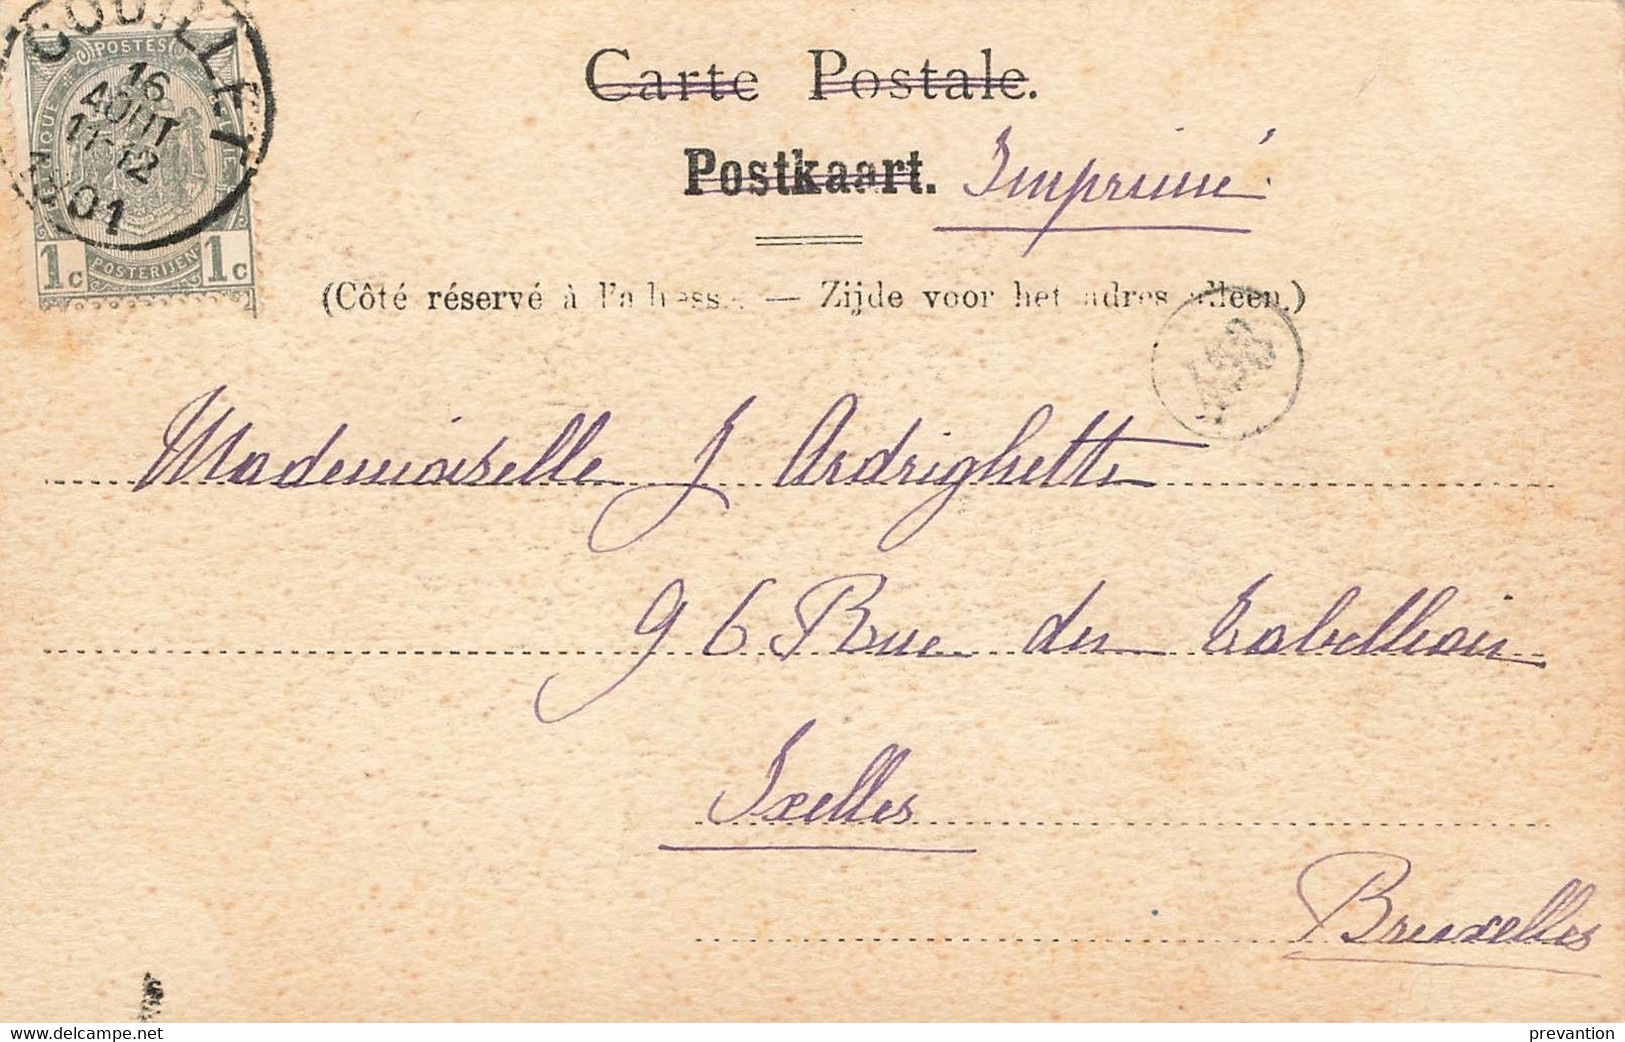 COUILLET
16
AOUT
11-12
01
POSTES
1c POSTERIJEN 1c
Carte Postale.
Postkaart. Imprimé
(Côté réservé à l'adresse — Zijde voor het adres alleen.)
Mademoiselle J Ardrighetti
96 Rue du
Ixelles
Bruxelles
www.delcampe.net
prevantion